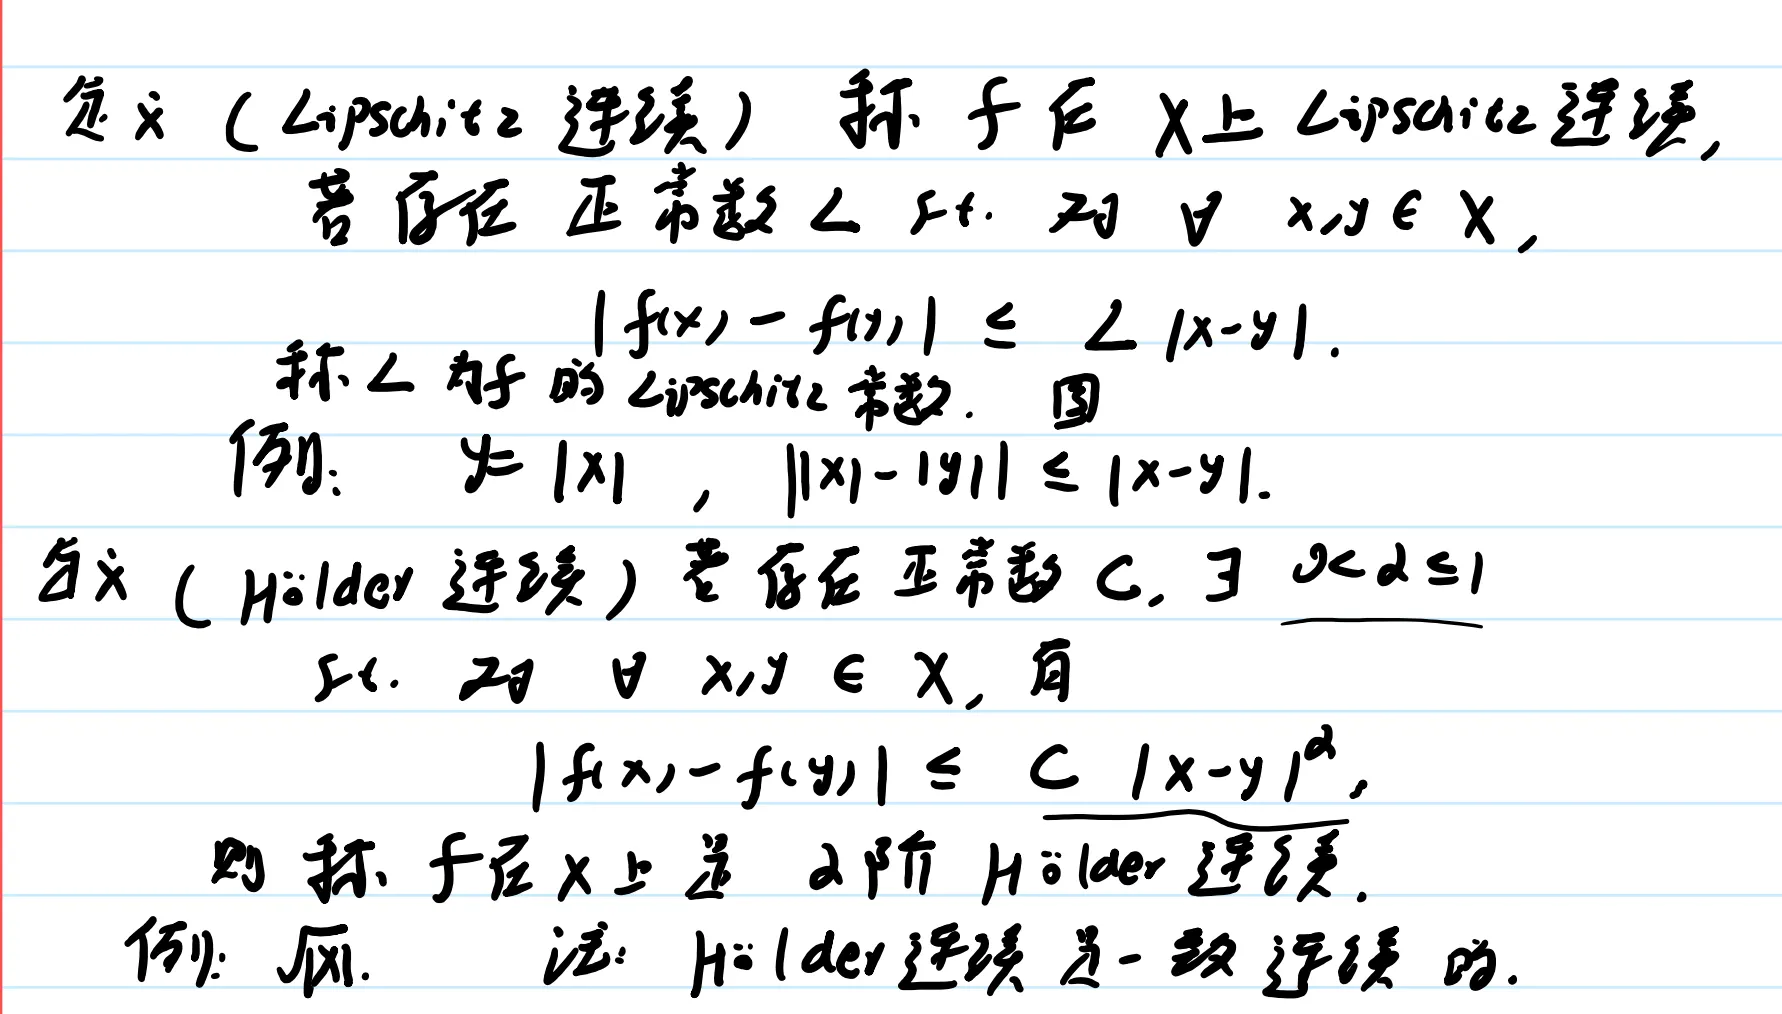 定义 (Lipschitz 连续) 称 f 在 X上 Lipschitz 连续,
若存在 正常数 L s.t. 对 ∀ x,y ∈ X,
|f(x) - f(y)| ≤ L |x-y|.
称 L 为 f 的 Lipschitz 常数. 图
例: y=|x| , ||x|-|y|| ≤ |x-y|.
定义 (Hölder 连续) 若 存在 正常数 C, ∃ 0<α≤1
s.t. 对 ∀ x,y ∈ X, 有
|f(x) - f(y)| ≤ C |x-y|^α,
则 称 f 在 X 上 是 α 阶 Hölder 连续.
例: √|x|. 注: Hölder 连续 是 一致 连续 的.